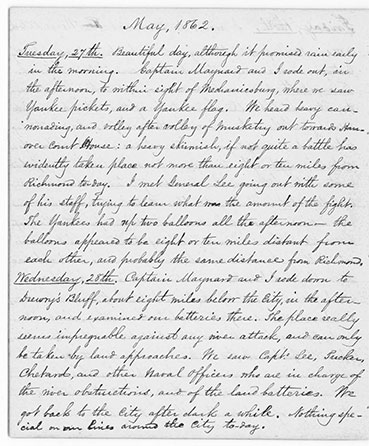 May, 1862.
Tuesday, 27th. Beautiful day, although it promised rain early
in the morning. Captain Maynard and I rode out, in
the afternoon, to within sight of Mechanicsburg, where we saw
Yankee pickets, and a Yankee flag. We heard heavy can-
nonading, and volley after volley of musketry out towards Han-
over Court House: a heavy skirmish, if not quite a battle has
evidently taken place not more than eight or ten miles from
Richmond to-day. I met General Lee going out with some
of his staff, trying to learn what was the amount of the fight.
The Yankees had up two balloons all the afternoon — the
balloons appeared to be eight or ten miles distant from
each other, and probably the same distance from Richmond.
Wednesday, 28th. Captain Maynard and I rode down to
Drewry's Bluff, about eight miles below the City, in the after-
noon, and examined our batteries there. The place really
seems impregnable against any river attack, and can only
be taken by land approaches. We saw Capts. Lee, Tucker,
and other Naval Officers who are in charge of
the river obstructions, and of the land batteries. We
got back to the City after dark a while. Nothing spe-
cial on our lines around the City to-day.